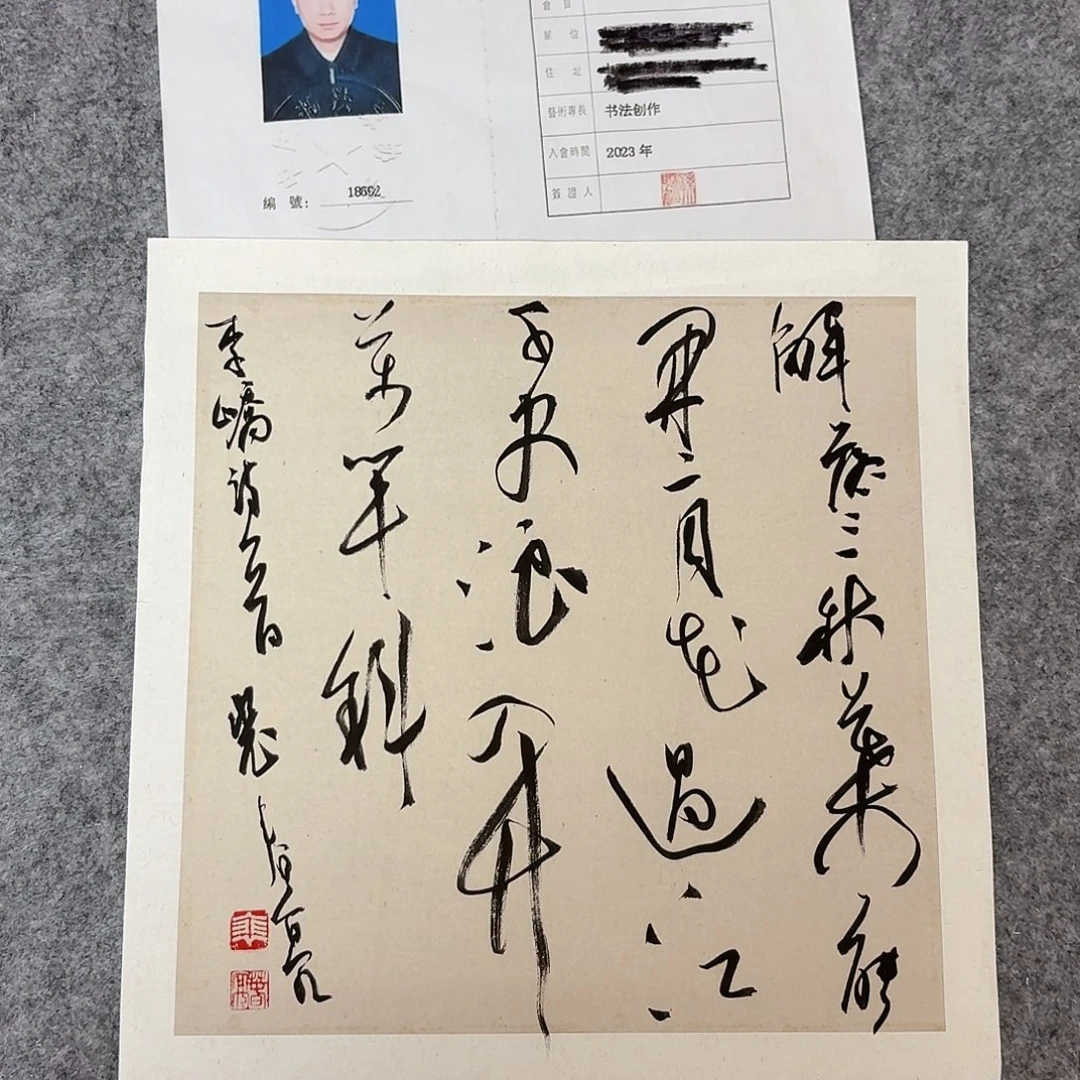 單 位
住 址
藝術專長 书法创作
入會時間 2023 年
簽證人
編 號: 18692
解落三秋葉能
開二月花過江
千尺浪入竹
萬竿斜
李嶠詩一首